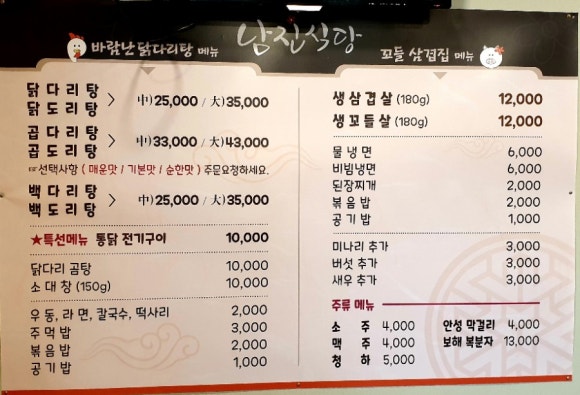 남진식당
바람난 닭다리탕 메뉴
닭다리탕
닭도리탕 > 中) 25,000 / 大) 35,000
곱다리탕
곱도리탕 > 中) 33,000 / 大) 43,000
☞선택사항 ( 매운맛 / 기본맛 / 순한맛 ) 주문요청하세요.
백다리탕
백도리탕 > 中) 25,000 / 大) 35,000
★특선메뉴 통닭 전기구이 10,000
닭다리 곰탕 10,000
소대창 (150g) 10,000
우동, 라면, 칼국수, 떡사리 2,000
주먹밥 3,000
볶음밥 2,000
공기밥 1,000
꼬들 삼겹집 메뉴
생삼겹살 (180g) 12,000
생꼬들살 (180g) 12,000
물냉면 6,000
비빔냉면 6,000
된장찌개 2,000
볶음밥 2,000
공기밥 1,000
미나리 추가 3,000
버섯 추가 3,000
새우 추가 3,000
주류 메뉴
소주 4,000 안성 막걸리 4,000
맥주 4,000 보해 복분자 13,000
청하 5,000